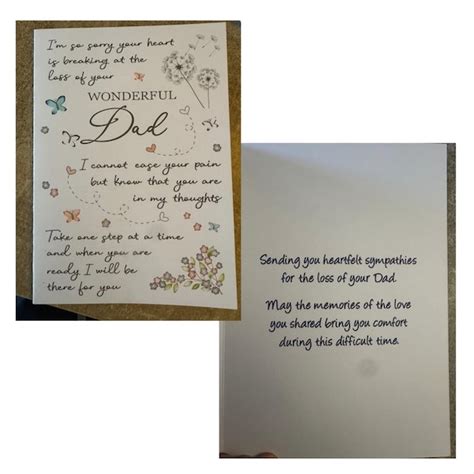 I'm so sorry your heart
is breaking at the
loss of your
WONDERFUL
Dad
I cannot ease your pain
but know that you are
in my thoughts
Take one step at a time
and when you are
ready I will be
there for you
Sending you heartfelt sympathies
for the loss of your Dad.
May the memories of the love
you shared bring you comfort
during this difficult time.